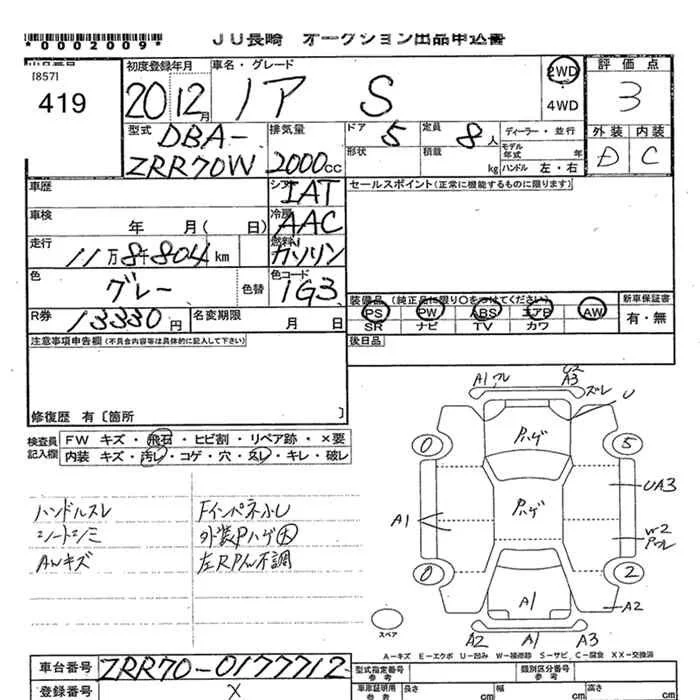 *0002009*
JU長崎 オークション出品申込書
[857]
419
初度登録年月
20 12月
車名・グレード
ノア S
2WD
4WD
評価点
3
外装 内装
D C
型式
DBA-
ZRR70W
排気量
2000cc
ドア
5
定員
8人
ディーラー・並行
形状
積載
kg
モデル年式 年
ハンドル 左・右
車歴
シフト
IAT
セールスポイント(正常に機能するものに限ります)
車検 年 月( 日)
冷房
AAC
走行
11万8千804km
燃料
ガソリン
色
グレー
色替
色コード
1G3
装備品 (純正品に限り○をつけてください)
新車保証書
PS PW ABS エアB AW
有・無
SR ナビ TV カワ
R券
13330円
名変期限 月 日
後日品
注意事項申告欄(不具合内容等は具体的に記入して下さい)
修復歴 有〔箇所 〕
検査員記入欄
FW キズ・飛石・ヒビ割・リペア跡・×要
内装 キズ・汚レ・コゲ・穴・スレ・キレ・破レ
ハンドルスレ
シートシミ
AWキズ
Fインパネ小し
外装Pハゲ大
左RPW不調
A1 フレ
U2
A3
ズレ
U
Pハゲ
0
5
UA3
Pハゲ
A1
W2
Pフレ
0
2
A2
A1
スペア
A2 A1 A3
A-キズ E-エクボ U-凹み W-補修跡 S-サビ C-腐食 XX-交換済
車台番号
ZRR70-0177712
型式指定番号
参考
類別区分番号
参考
登録番号
X
車庫証明用
参考
長さ
cm
幅
cm
高さ
cm